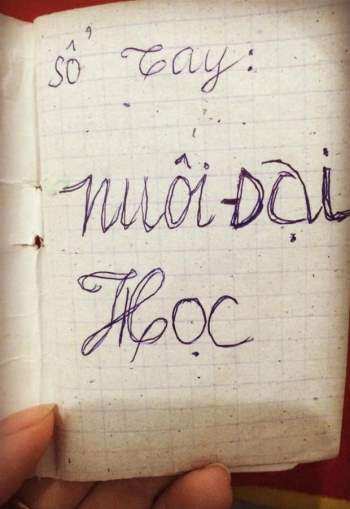 Sổ Tay:
nuôi-Đại
Học